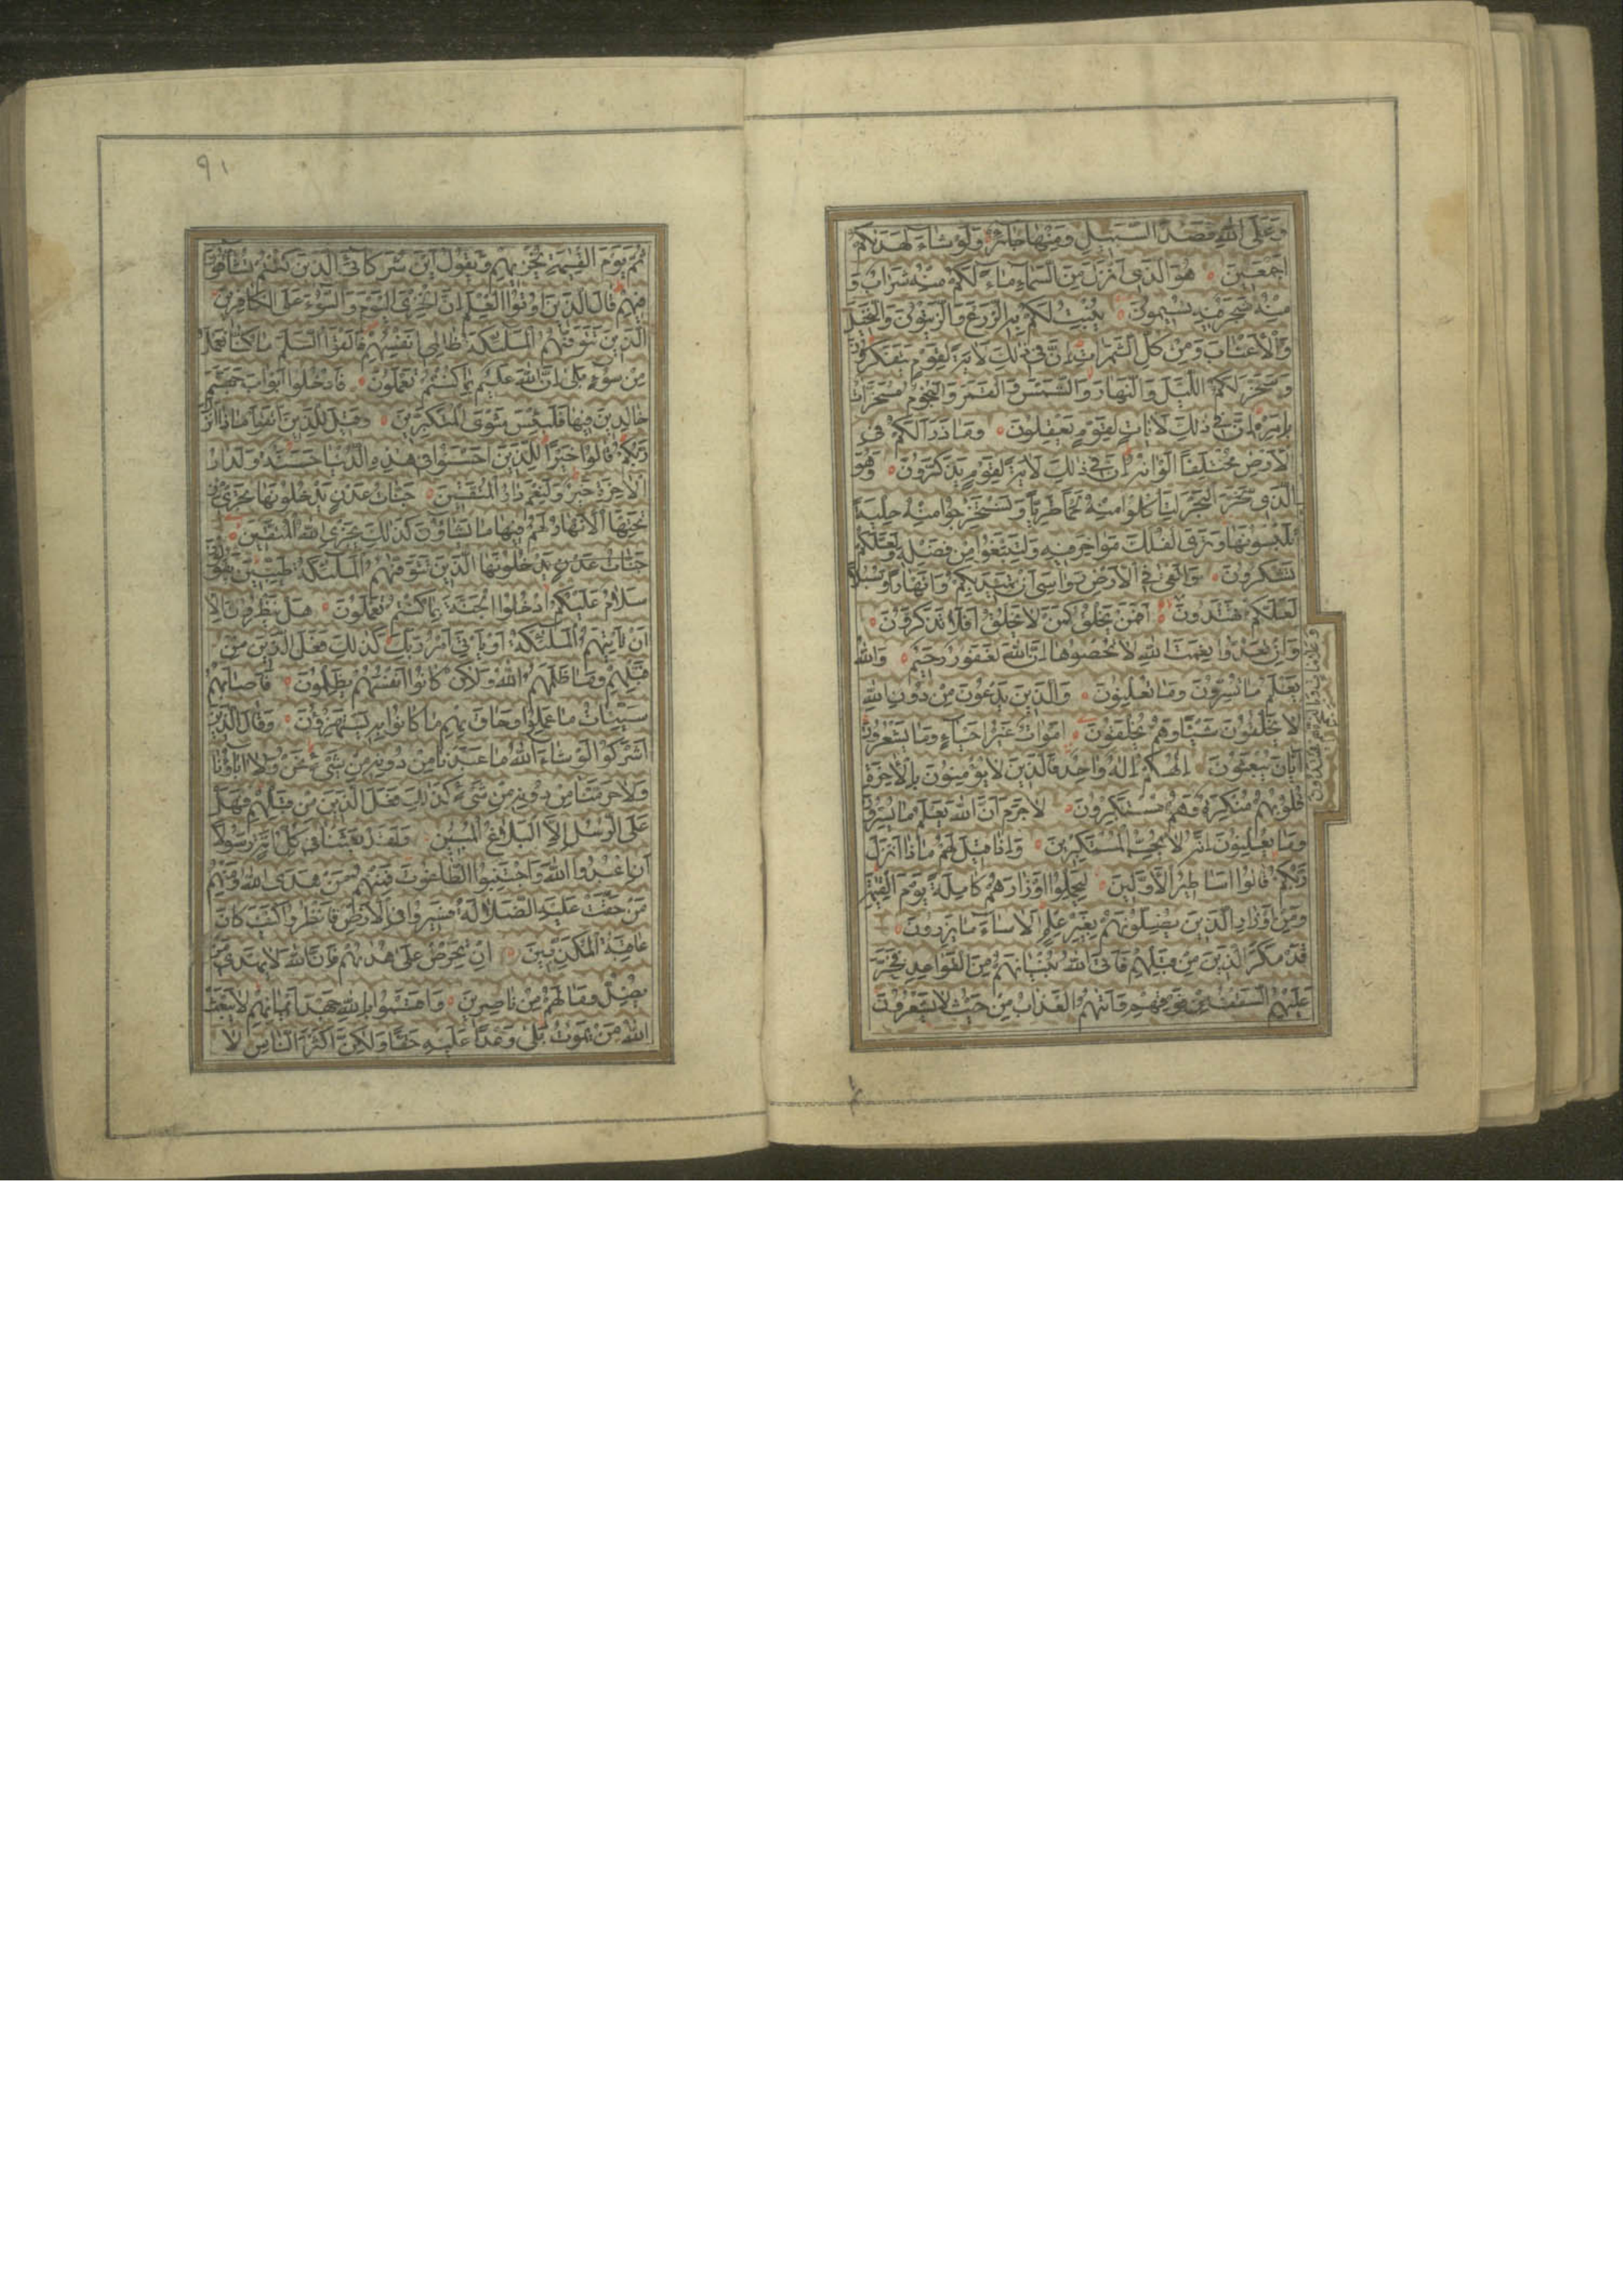 وَعَلَى اللهِ قَصْدُ السَّبِيلِ وَمِنْهَا جَائِرٌ وَلَوْ شَاءَ لَهَدٰيكُمْ
اَجْمَعِينَ هُوَ الَّذِى اَنْزَلَ مِنَ السَّمَاءِ مَاءً لَكُمْ مِنْهُ شَرَابٌ وَ
مِنْهُ شَجَرٌ فِيهِ تُسِيمُونَ يُنْبِتُ لَكُمْ بِهِ الزَّرْعَ وَالزَّيْتُونَ وَالنَّخِيلَ
وَالْاَعْنَابَ وَمِنْ كُلِّ الثَّمَرَاتِ اِنَّ فِى ذٰلِكَ لَاٰيَةً لِقَوْمٍ يَتَفَكَّرُونَ
وَسَخَّرَ لَكُمُ اللَّيْلَ وَالنَّهَارَ وَالشَّمْسَ وَالْقَمَرَ وَالنُّجُومُ مُسَخَّرَاتٌ
بِاَمْرِهِ اِنَّ فِى ذٰلِكَ لَاٰيَاتٍ لِقَوْمٍ يَعْقِلُونَ وَمَا ذَرَاَ لَكُمْ فِى
الْاَرْضِ مُخْتَلِفًا اَلْوَانُهُ اِنَّ فِى ذٰلِكَ لَاٰيَةً لِقَوْمٍ يَذَّكَّرُونَ وَهُوَ
الَّذِى سَخَّرَ الْبَحْرَ لِتَاْكُلُوا مِنْهُ لَحْمًا طَرِيًّا وَتَسْتَخْرِجُوا مِنْهُ حِلْيَةً
تَلْبَسُونَهَا وَتَرَى الْفُلْكَ مَوَاخِرَ فِيهِ وَلِتَبْتَغُوا مِنْ فَضْلِهِ وَلَعَلَّكُمْ
تَشْكُرُونَ وَاَلْقٰى فِى الْاَرْضِ رَوَاسِىَ اَنْ تَمِيدَ بِكُمْ وَاَنْهَارًا وَسُبُلًا
لَعَلَّكُمْ تَهْتَدُونَ اَفَمَنْ يَخْلُقُ كَمَنْ لَا يَخْلُقُ اَفَلَا تَذَكَّرُونَ
وَعَلَامَاتٍ وَبِالنَّجْمِ هُمْ يَهْتَدُونَ
وَاِنْ تَعُدُّوا نِعْمَتَ اللهِ لَا تُحْصُوهَا اِنَّ اللهَ لَغَفُورٌ رَحِيمٌ وَاللهُ
يَعْلَمُ مَا تُسِرُّونَ وَمَا تُعْلِنُونَ وَالَّذِينَ يَدْعُونَ مِنْ دُونِ اللهِ
لَا يَخْلُقُونَ شَيْئًا وَهُمْ يُخْلَقُونَ اَمْوَاتٌ غَيْرُ اَحْيَاءٍ وَمَا يَشْعُرُونَ
اَيَّانَ يُبْعَثُونَ اِلٰهُكُمْ اِلٰهٌ وَاحِدٌ فَالَّذِينَ لَا يُؤْمِنُونَ بِالْاٰخِرَةِ
قُلُوبُهُمْ مُنْكِرَةٌ وَهُمْ مُسْتَكْبِرُونَ لَا جَرَمَ اَنَّ اللهَ يَعْلَمُ مَا يُسِرُّونَ
وَمَا يُعْلِنُونَ اِنَّهُ لَا يُحِبُّ الْمُسْتَكْبِرِينَ وَاِذَا قِيلَ لَهُمْ مَاذَا اَنْزَلَ
رَبُّكُمْ قَالُوا اَسَاطِيرُ الْاَوَّلِينَ لِيَحْمِلُوا اَوْزَارَهُمْ كَامِلَةً يَوْمَ الْقِيٰمَةِ
وَمِنْ اَوْزَارِ الَّذِينَ يُضِلُّونَهُمْ بِغَيْرِ عِلْمٍ اَلَا سَاءَ مَا يَزِرُونَ
قَدْ مَكَرَ الَّذِينَ مِنْ قَبْلِهِمْ فَاَتَى اللهُ بُنْيَانَهُمْ مِنَ الْقَوَاعِدِ فَخَرَّ
عَلَيْهِمُ السَّقْفُ مِنْ فَوْقِهِمْ وَاَتٰيهُمُ الْعَذَابُ مِنْ حَيْثُ لَا يَشْعُرُونَ
٩١
ثُمَّ يَوْمَ الْقِيٰمَةِ يُخْزِيهِمْ وَيَقُولُ اَيْنَ شُرَكَائِىَ الَّذِينَ كُنْتُمْ تُشَاقُّونَ
فِيهِمْ قَالَ الَّذِينَ اُوتُوا الْعِلْمَ اِنَّ الْخِزْىَ الْيَوْمَ وَالسُّوءَ عَلَى الْكَافِرِينَ
الَّذِينَ تَتَوَفّٰيهُمُ الْمَلٰئِكَةُ ظَالِمِى اَنْفُسِهِمْ فَاَلْقَوُا السَّلَمَ مَا كُنَّا نَعْمَلُ
مِنْ سُوءٍ بَلٰى اِنَّ اللهَ عَلِيمٌ بِمَا كُنْتُمْ تَعْمَلُونَ فَادْخُلُوا اَبْوَابَ جَهَنَّمَ
خَالِدِينَ فِيهَا فَلَبِئْسَ مَثْوَى الْمُتَكَبِّرِينَ وَقِيلَ لِلَّذِينَ اتَّقَوْا مَاذَا اَنْزَلَ
رَبُّكُمْ قَالُوا خَيْرًا لِلَّذِينَ اَحْسَنُوا فِى هٰذِهِ الدُّنْيَا حَسَنَةٌ وَلَدَارُ
الْاٰخِرَةِ خَيْرٌ وَلَنِعْمَ دَارُ الْمُتَّقِينَ جَنَّاتُ عَدْنٍ يَدْخُلُونَهَا تَجْرِى مِنْ
تَحْتِهَا الْاَنْهَارُ لَهُمْ فِيهَا مَا يَشَاؤُنَ كَذٰلِكَ يَجْزِى اللهُ الْمُتَّقِينَ
جَنَّاتُ عَدْنٍ يَدْخُلُونَهَا الَّذِينَ تَتَوَفّٰيهُمُ الْمَلٰئِكَةُ طَيِّبِينَ يَقُولُونَ
سَلَامٌ عَلَيْكُمُ ادْخُلُوا الْجَنَّةَ بِمَا كُنْتُمْ تَعْمَلُونَ هَلْ يَنْظُرُونَ اِلَّا
اَنْ تَاْتِيَهُمُ الْمَلٰئِكَةُ اَوْ يَاْتِىَ اَمْرُ رَبِّكَ كَذٰلِكَ فَعَلَ الَّذِينَ مِنْ
قَبْلِهِمْ وَمَا ظَلَمَهُمُ اللهُ وَلٰكِنْ كَانُوا اَنْفُسَهُمْ يَظْلِمُونَ فَاَصَابَهُمْ
سَيِّئَاتُ مَا عَمِلُوا وَحَاقَ بِهِمْ مَا كَانُوا بِهِ يَسْتَهْزِؤُنَ وَقَالَ الَّذِينَ
اَشْرَكُوا لَوْ شَاءَ اللهُ مَا عَبَدْنَا مِنْ دُونِهِ مِنْ شَىْءٍ نَحْنُ وَلَا اٰبَاؤُنَا
وَلَا حَرَّمْنَا مِنْ دُونِهِ مِنْ شَىْءٍ كَذٰلِكَ فَعَلَ الَّذِينَ مِنْ قَبْلِهِمْ فَهَلْ
عَلَى الرُّسُلِ اِلَّا الْبَلَاغُ الْمُبِينُ وَلَقَدْ بَعَثْنَا فِى كُلِّ اُمَّةٍ رَسُولًا
اَنِ اعْبُدُوا اللهَ وَاجْتَنِبُوا الطَّاغُوتَ فَمِنْهُمْ مَنْ هَدَى اللهُ وَمِنْهُمْ
مَنْ حَقَّتْ عَلَيْهِ الضَّلَالَةُ فَسِيرُوا فِى الْاَرْضِ فَانْظُرُوا كَيْفَ كَانَ
عَاقِبَةُ الْمُكَذِّبِينَ اِنْ تَحْرِصْ عَلٰى هُدٰيهُمْ فَاِنَّ اللهَ لَا يَهْدِى مَنْ
يُضِلُّ وَمَا لَهُمْ مِنْ نَاصِرِينَ وَاَقْسَمُوا بِاللهِ جَهْدَ اَيْمَانِهِمْ لَا يَبْعَثُ
اللهُ مَنْ يَمُوتُ بَلٰى وَعْدًا عَلَيْهِ حَقًّا وَلٰكِنَّ اَكْثَرَ النَّاسِ لَا